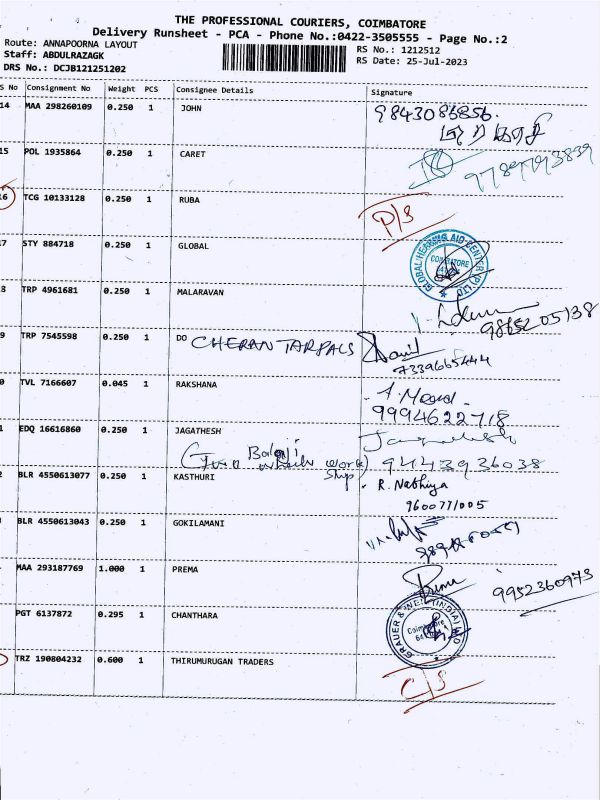 THE PROFESSIONAL COURIERS, COIMBATORE
Delivery Runsheet - PCA - Phone No.:0422-3505555 - Page No.:2
Route: ANNAPOORNA LAYOUT
RS No.: 1212512
Staff: ABDULRAZAGK
RS Date: 25-Jul-2023
DRS No.: DCJB121251202
S No Consignment No Weight PCS Consignee Details Signature
14 MAA 298260109 0.250 1 JOHN 9843086856.
15 POL 1935864 0.250 1 CARET
16 TCG 10133128 0.250 1 RUBA P/S
17 STY 884718 0.250 1 GLOBAL GLOBAL HEARING AID CENTER (P) LTD COIMBATORE
8 TRP 4961681 0.250 1 MALARAVAN 9865205138
9 TRP 7545598 0.250 1 DO CHERAN TARPALS
7339665444
0 TVL 7166607 0.045 1 RAKSHANA
9994622718
1 EDQ 16616860 0.250 1 JAGATHESH
Balaji
wheele work 9443936038
ship
2 BLR 4550613077 0.250 1 KASTHURI R. Nathiya
9600771005
BLR 4550613043 0.250 1 GOKILAMANI
MAA 293187769 1.000 1 PREMA Prema
9952360973
PGT 6137872 0.295 1 CHANTHARA GRAUER & WEIL (INDIA) LTD Coimbatore
TRZ 190804232 0.600 1 THIRUMURUGAN TRADERS C/S